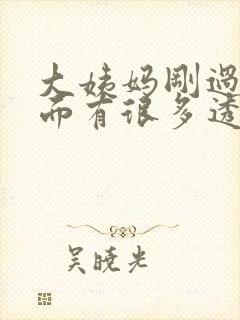 大姨妈刚過
而有很多透
吴晓光